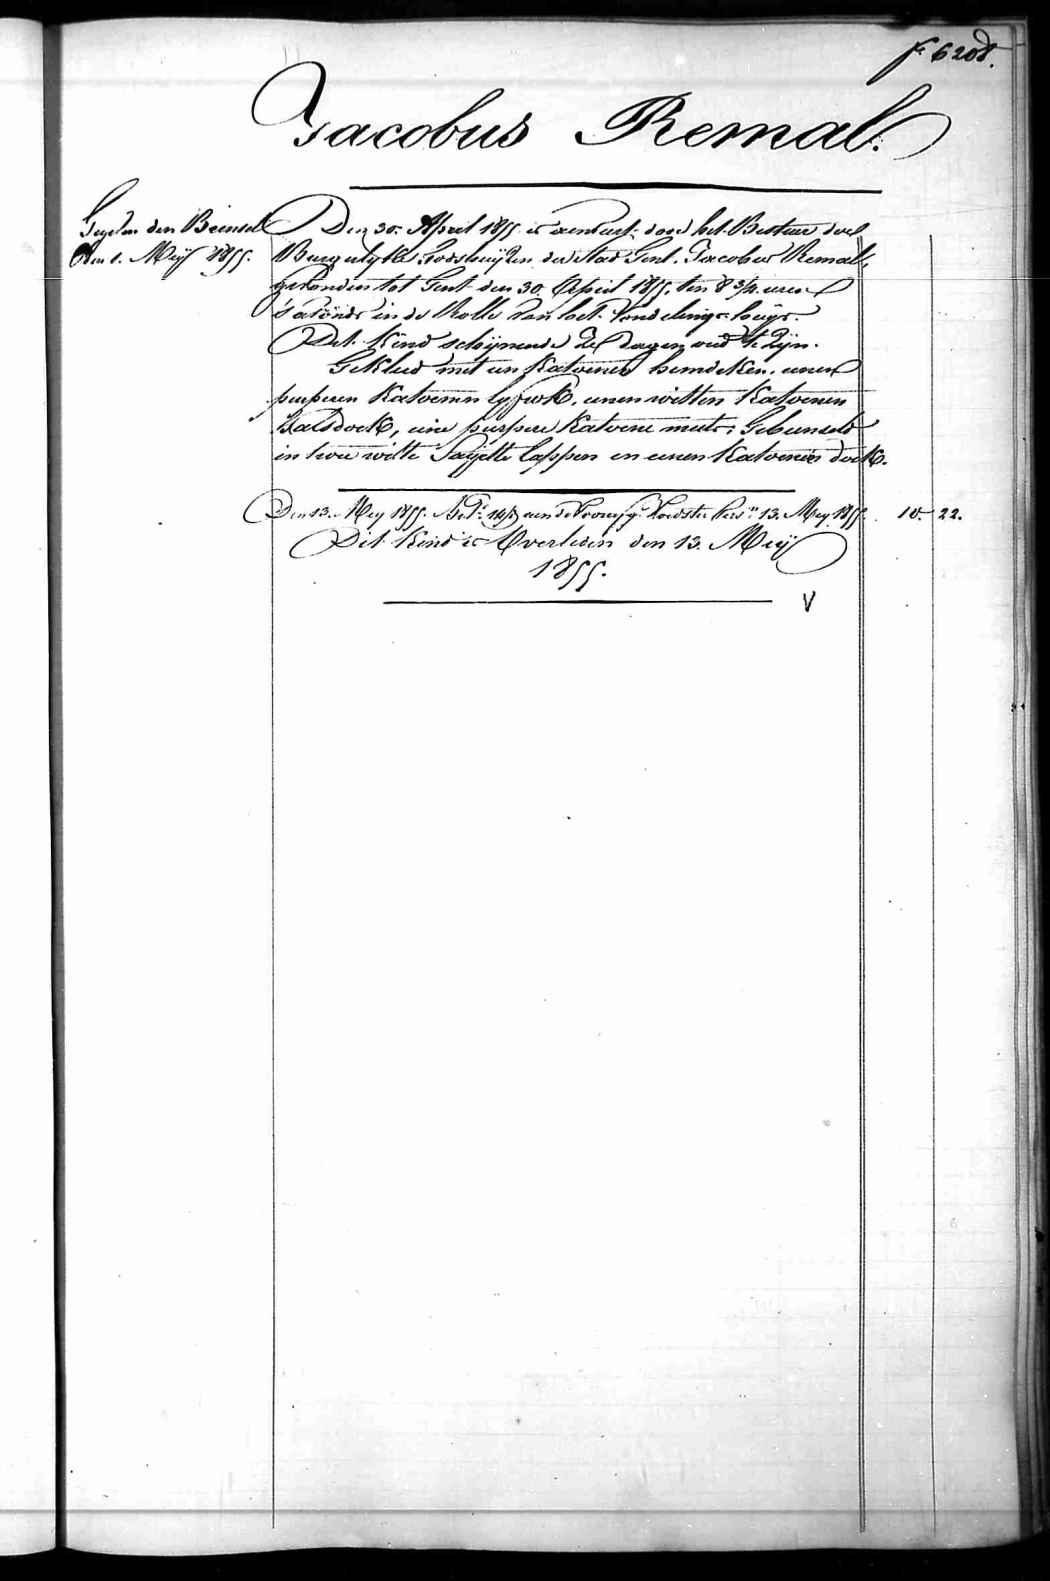 f. 6208.
Jacobus Remal.
Gegeven den Bunsel
den 1. Meij 1855.
Den 30. April 1855 is aenveert door het Bestuer der
Burgerlyke Godshuijzen der Stad Gent. Jacobus Remal,
gevonden tot Gent den 30 April 1855, ten 8 3/4 uren
s'avônds in de Rolle van het Vondelings-huijs.
Dit Kind schijnende dagen oud te Zijn.
Gekleed met een Katoenen hemdeken, eenen
purperen Katoenen lyfrok, eenen witten Katoenen
Halsdoek, eene purpere Katoene muts; Gebunseld
in twee witte Sayette lappen en eenen Katoenen doek.
Den 13. Mey 1855. aen de Voedster 13. Mey 1855. 10. 22.
Dit Kind is Overleden den 13. Meij
1855.
V